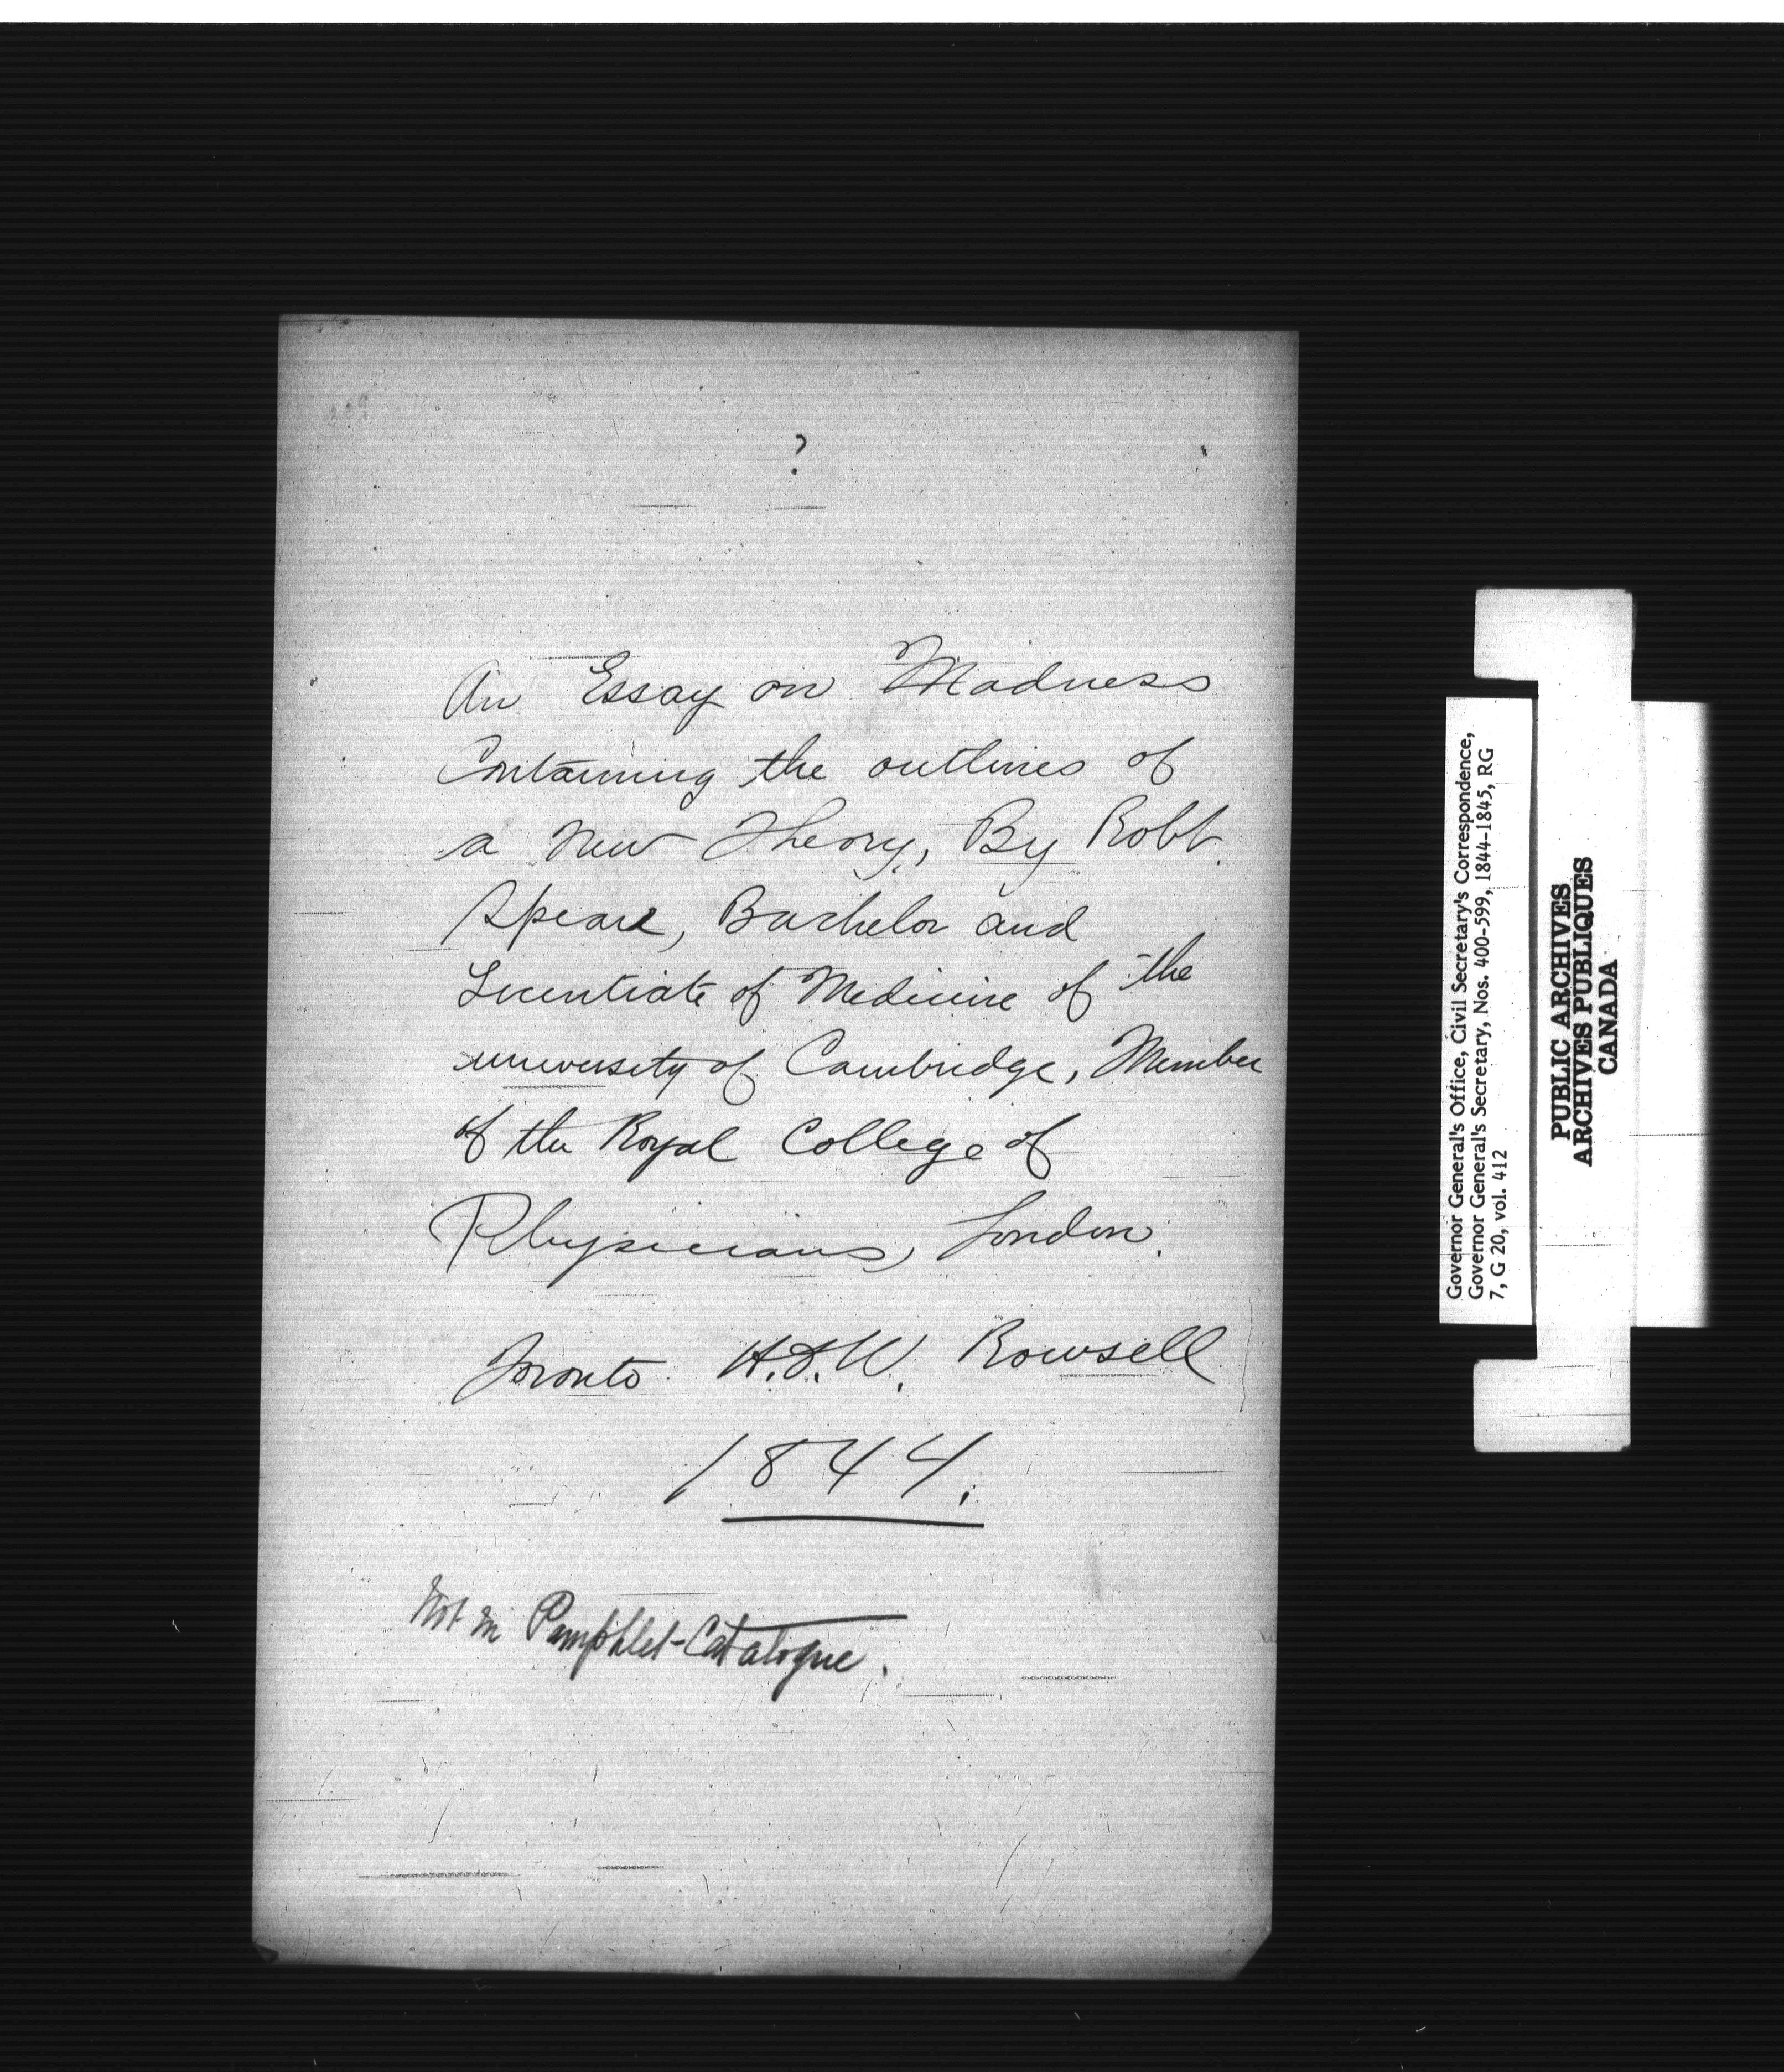 ?
An Essay on Madness
Containing the outlines of
a New Theory, By Robt.
Spear, Bachelor and
Licentiate of Medicine of the
university of Cambridge, Member
of the Royal College of
Physicians, London.
Toronto H.&.W. Rowsell
1844.
Not in Pamphlet-Catalogue.
Governor General's Office, Civil Secretary's Correspondence,
Governor General's Secretary, Nos. 400-599, 1844-1845, RG
7, G 20, vol. 412
PUBLIC ARCHIVES
ARCHIVES PUBLIQUES
CANADA